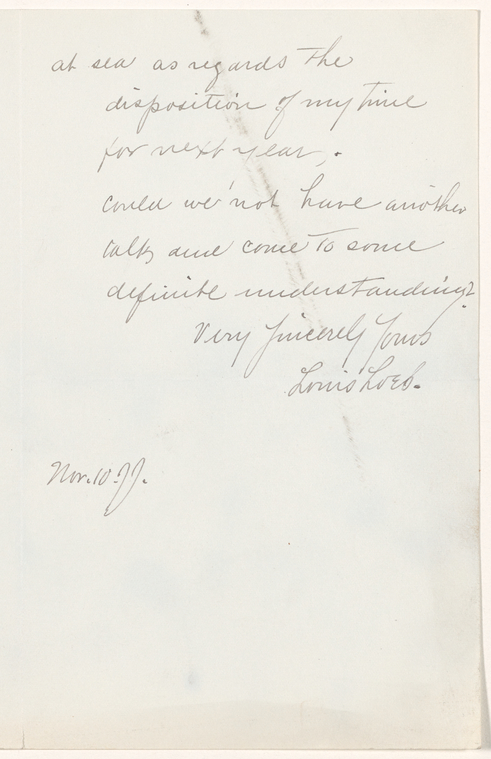 at sea as regards the
disposition of my time
for next year,.
could we not have another
talk and come to some
definite understanding?
Very Sincerely Yours
Louis Loeb.
Nov. 10.